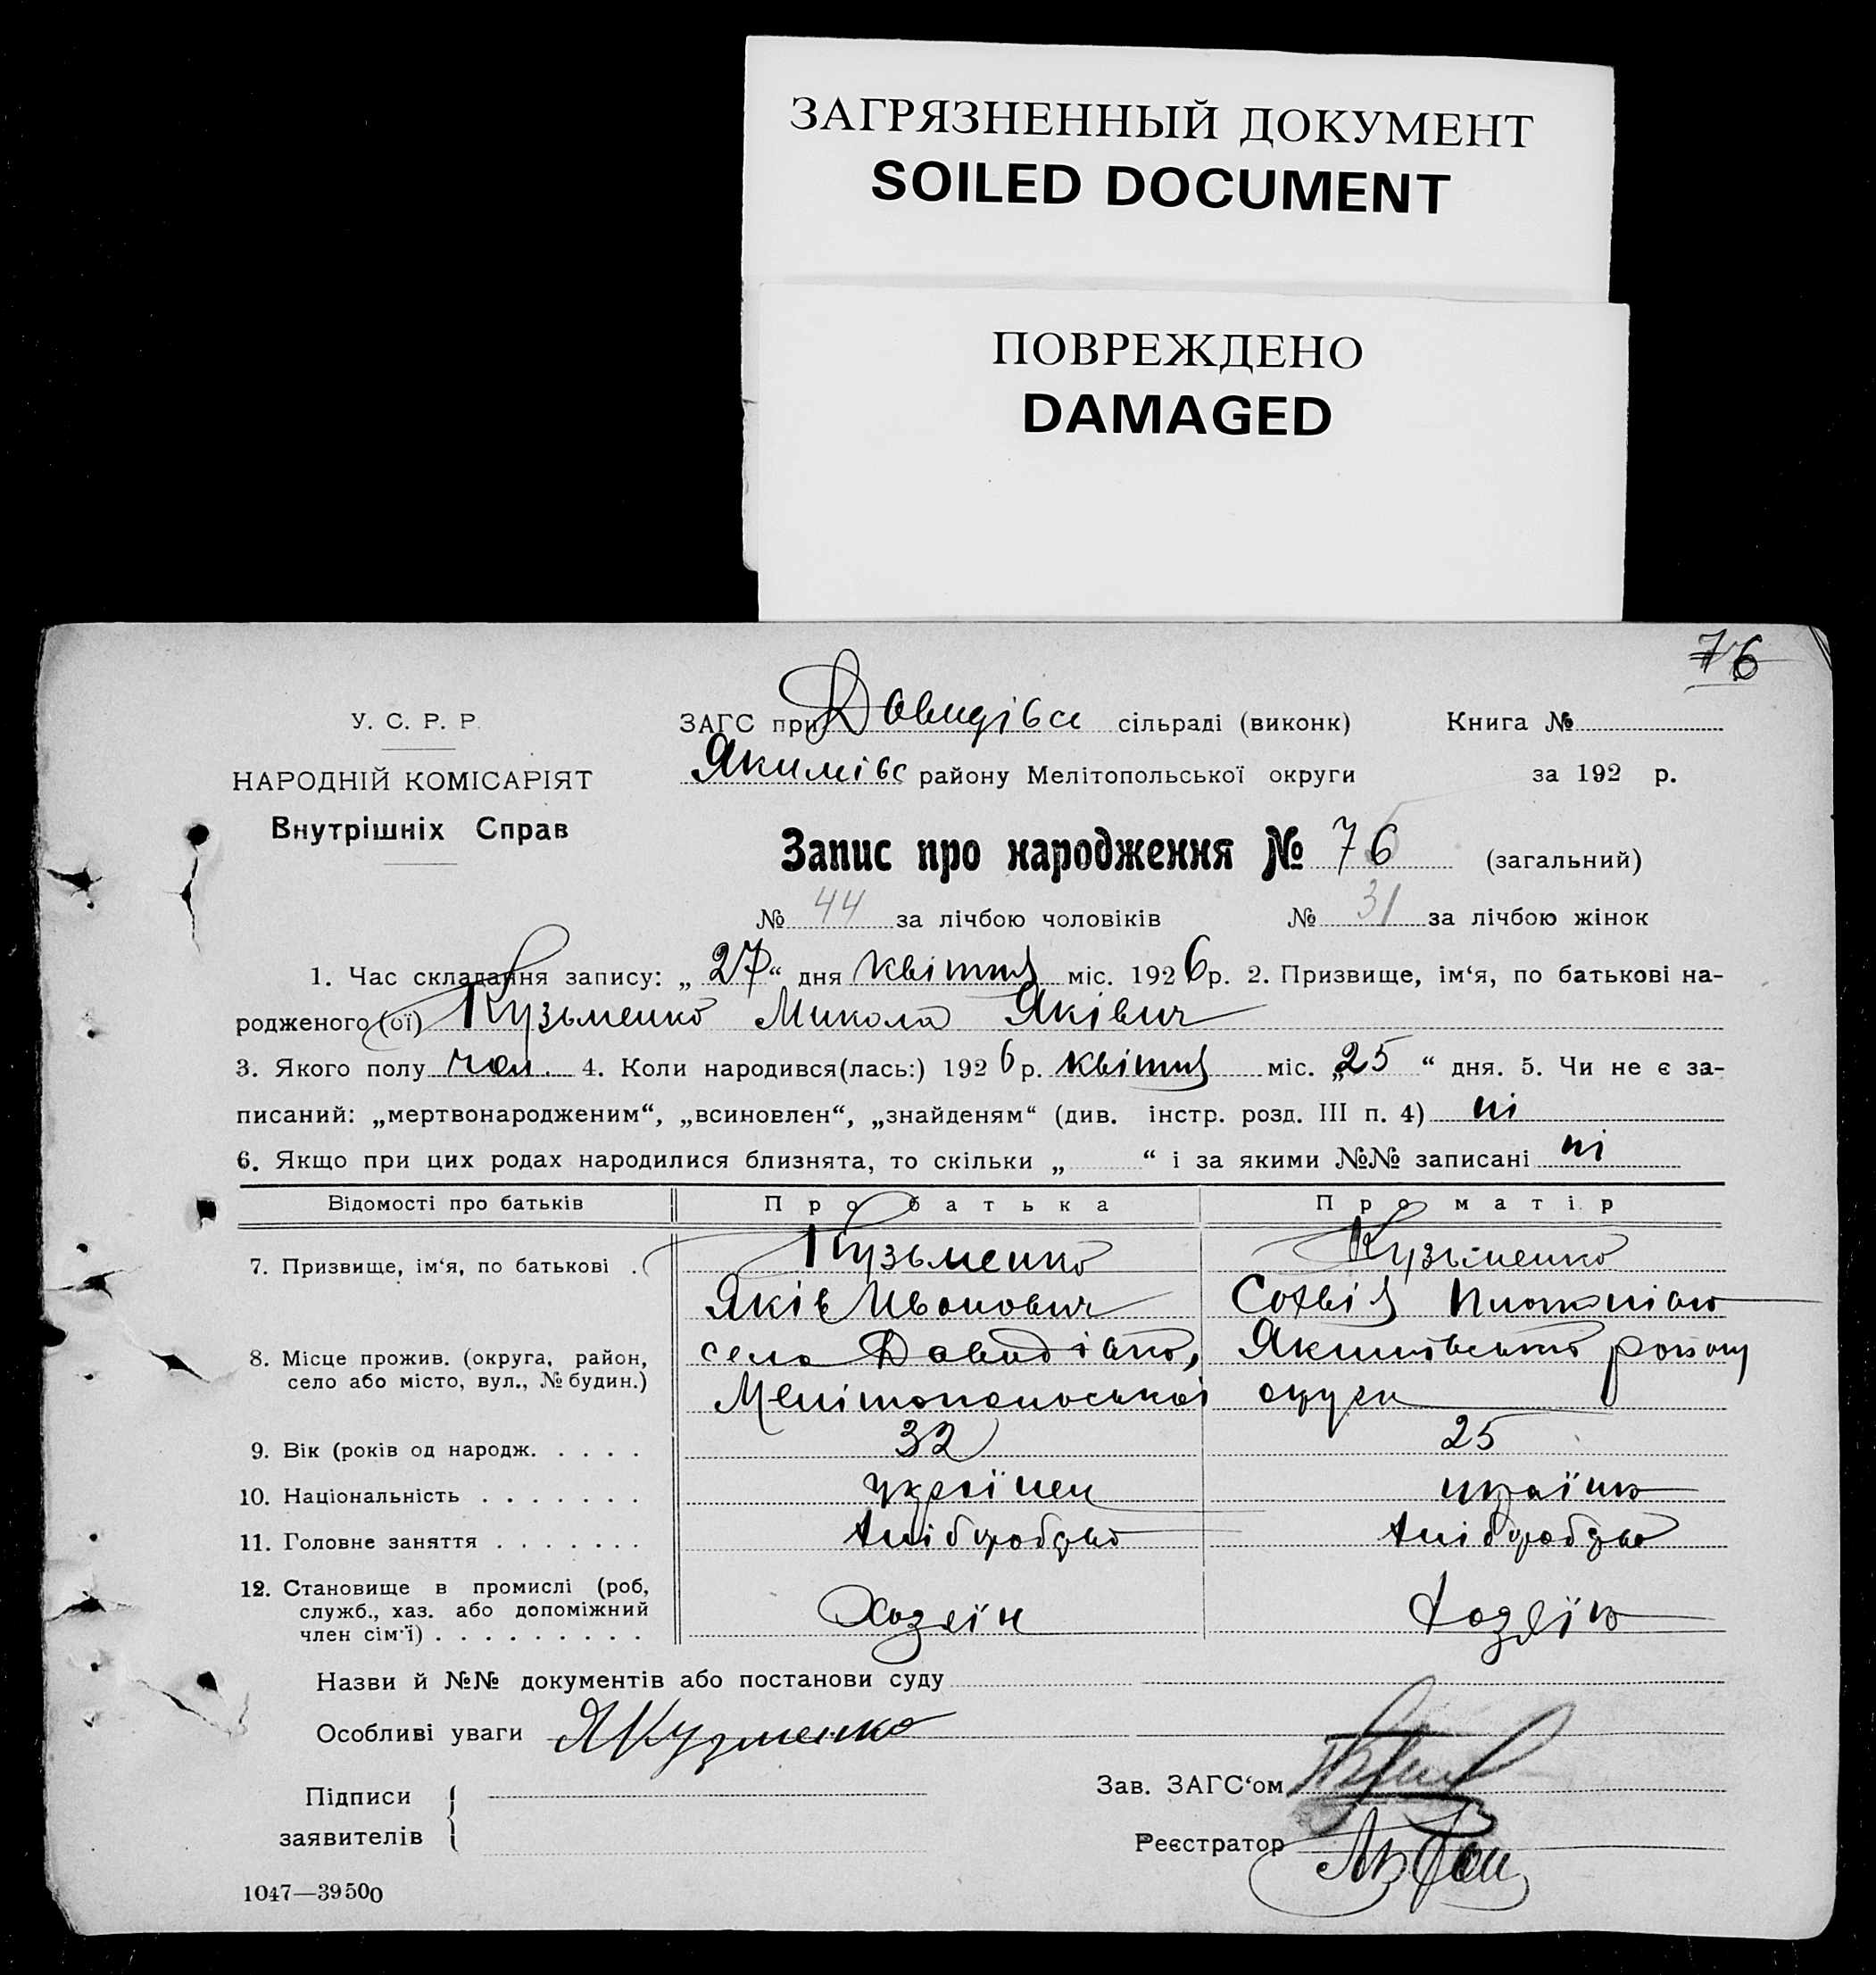 ЗАГРЯЗНЕННЫЙ ДОКУМЕНТ
SOILED DOCUMENT
ПОВРЕЖДЕНО
DAMAGED
76
У. С. Р. Р.
НАРОДНІЙ КОМІСАРІЯТ
Внутрішніх Справ
ЗАГС при Давидівсі сільраді (виконк) Книга №
Якимівс району Мелітопольської округи за 192 р.
Запис про народження № 76 (загальний)
№ 44 за лічбою чоловіків № 31 за лічбою жінок
1. Час складання запису: „ 27 “ дня квітня міс. 1926 р. 2. Призвище, ім‘я, по батькові на-
родженого (ої) Кузьменко Микола Яківич
3. Якого полу чол. 4. Коли народився(лась:) 1926 р. квітня міс. „25 “ дня. 5. Чи не є за-
писаний: „мертвонародженим“, „всиновлен“, „знайденям“ (див. інстр. розд. III п. 4) ні
6. Якщо при цих родах народилися близнята, то скільки „ “ і за якими №№ записані ні
Відомості про батьків Про батька Про матір
7. Призвище, ім‘я, по батькові . Кузьменко Кузьменко
Яків Иванович
8. Місце прожив. (округа, район, село або місто, вул., № будин.) село Давидівка, Якимівського району
Мелітопольської округи
9. Вік (років од народж. . . . . 32 25
10. Національність . . . . . . . українец україна
11. Головне заняття . . . . . . . хліборобство хліборобство
12. Становище в промислі (роб, служб., хаз. або допоміжний член сім‘ї) . . . . . . . . . Хозяїн хозяїка
Назви й №№ документів або постанови суду
Особливі уваги ЯКузменко
Підписи
заявителів
Зав. ЗАГС‘ом
Реєстратор
1047—39500